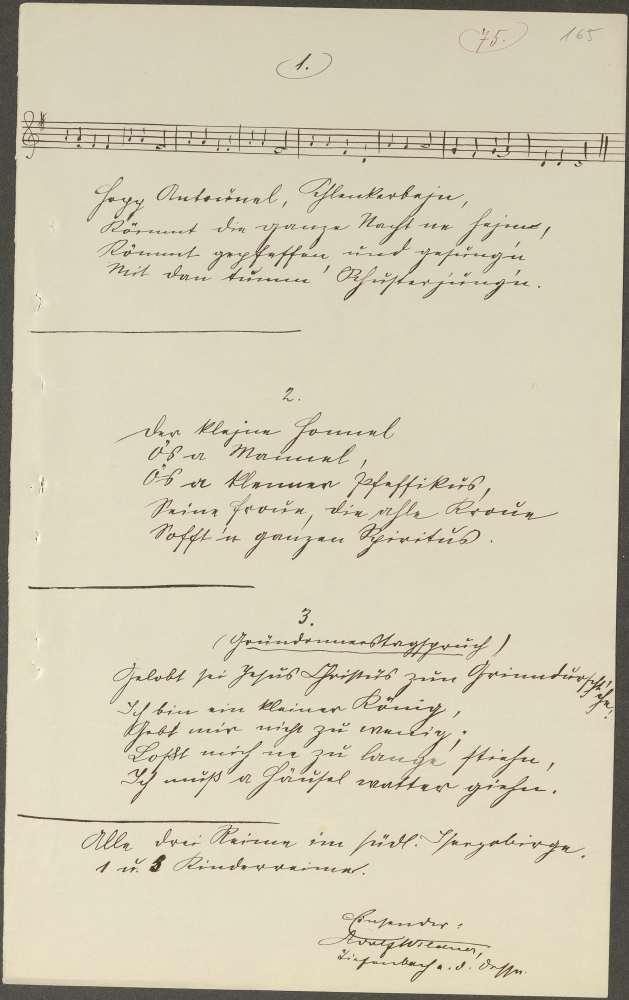 75.
165
1.
Hopp Antoünel, Schlenkerbejn,
Kömmt die ganze Nacht ne hejm,
Kömmt gepfeffen und gesung'n
Mit dan tumm Schusterjung'n.
2.
Der klejne Honnel
Ös a Mannel,
Ös a klenner Pfeffikus,
Seine Froue, die ahle Kroue
Sofft'n ganzen Spiritus.
3.
(Gründonnerstagspruch)
Gelobt sei Jesus Christus zum
Ich bin ein kleiner König,
Gebt mir nicht zu wenig;
Loßt mich ne zu lange stiehn,
Ich muß a Häusel watter giehn.
Alle drei Reime im südl. Isergebirge.
1 u. 3 Kinderreime.
Einsender:
Adolf
Tiefenbach a. d. Desse.